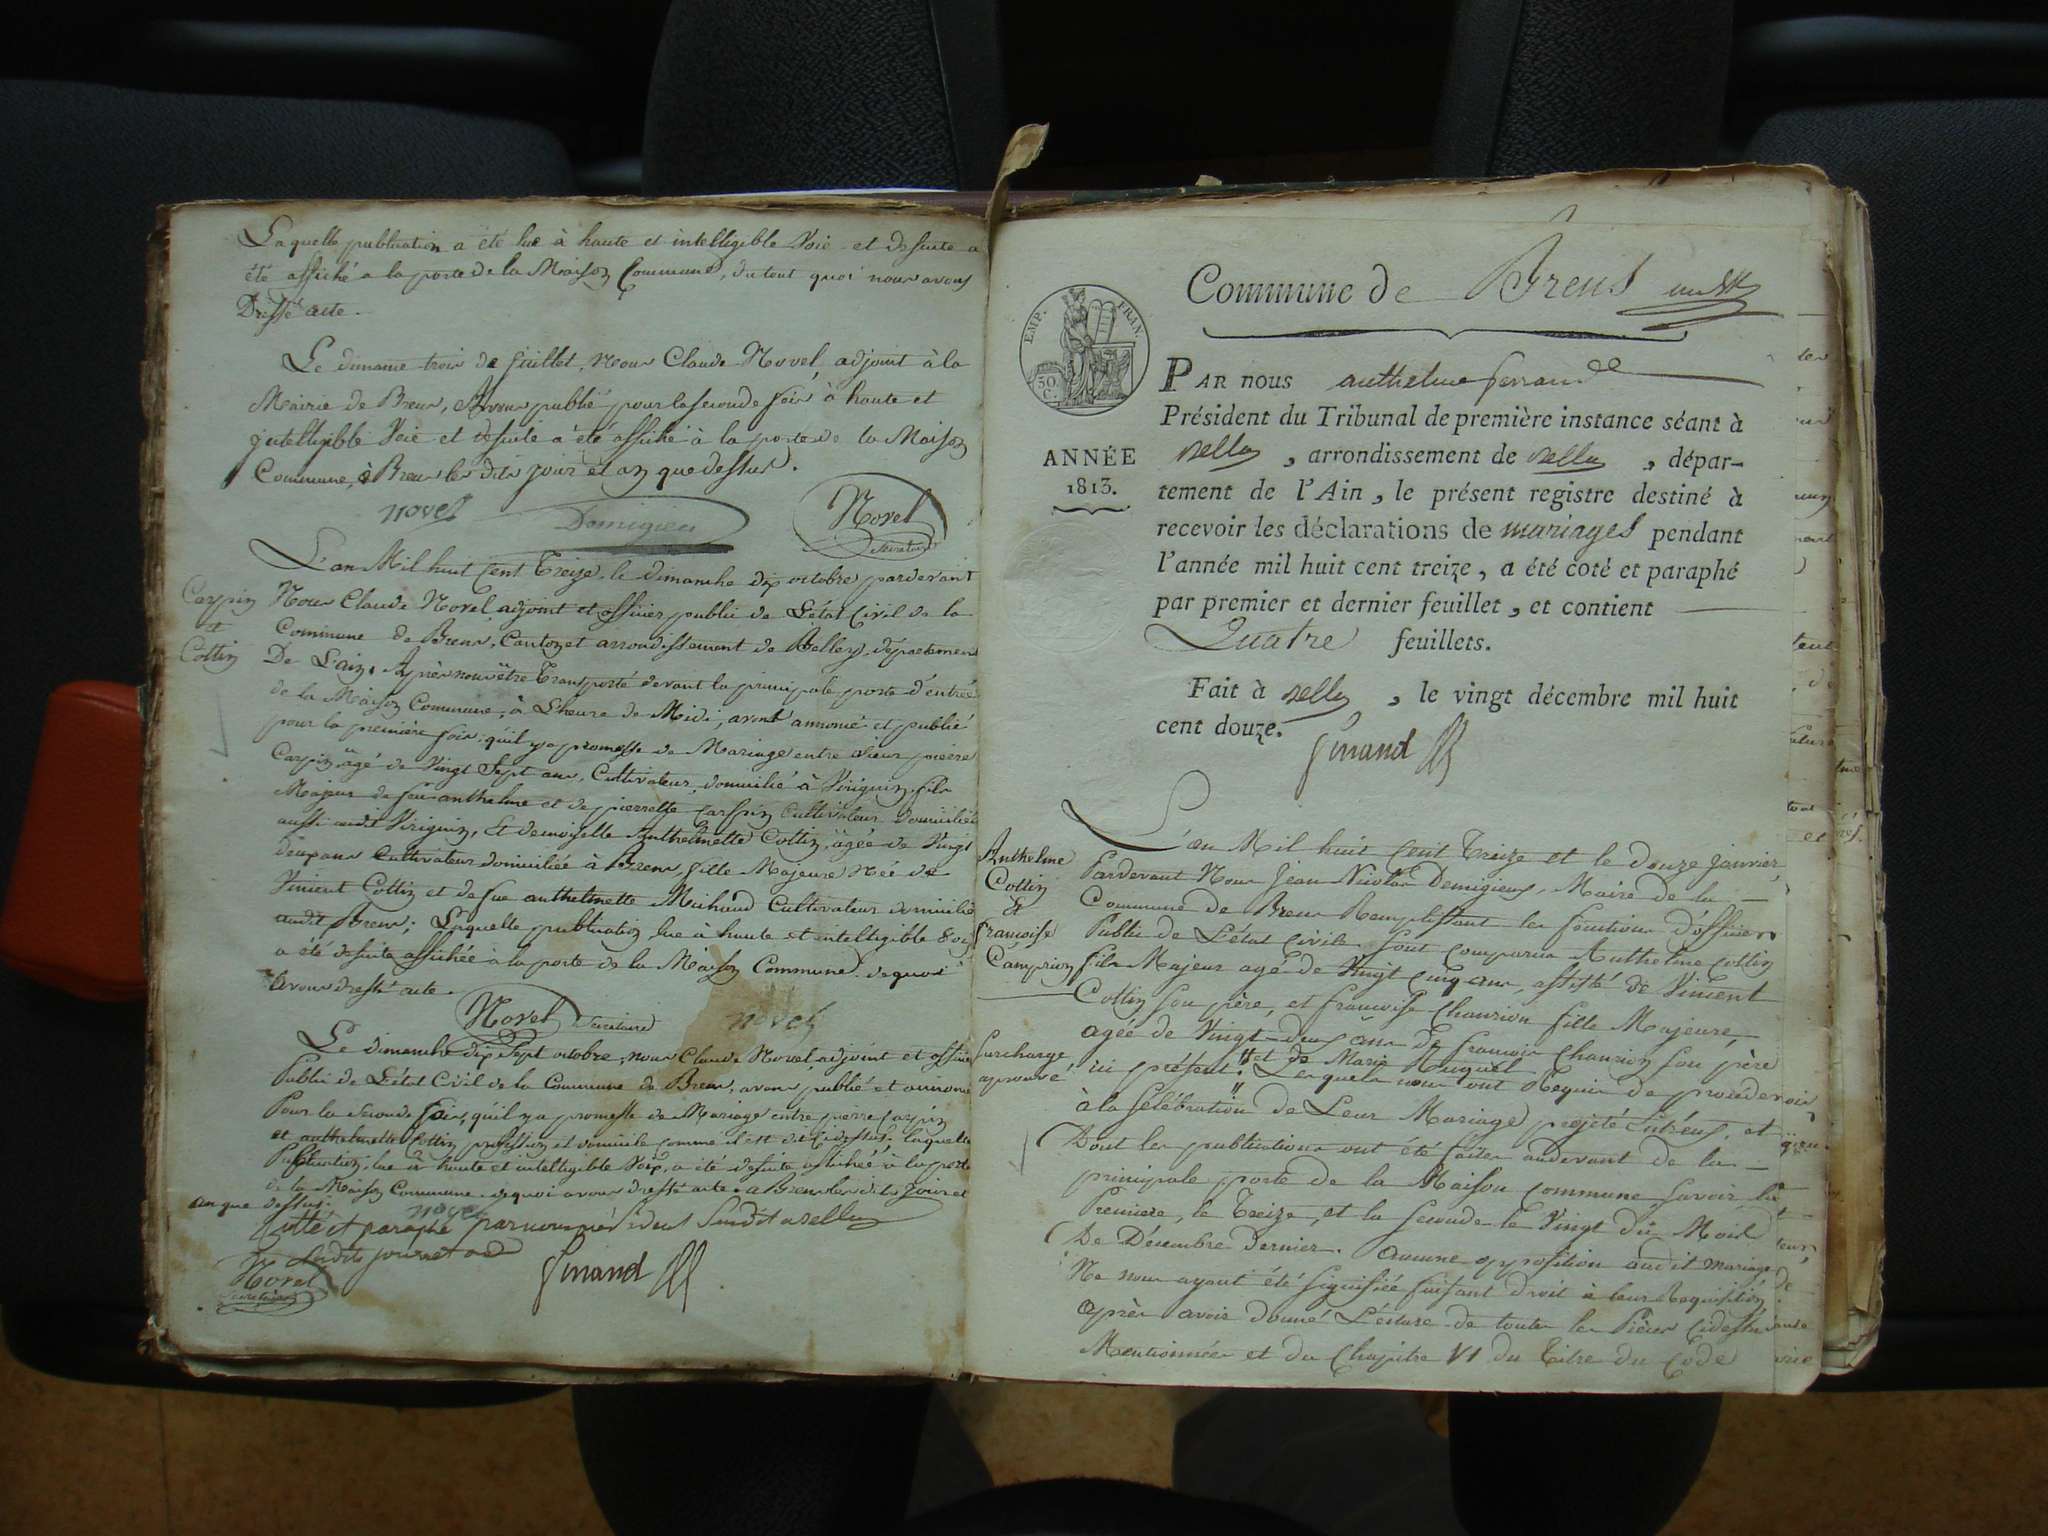 Laquelle publication a été lue à haute et intelligible Voie et desuite a
été affiché a la porte de la Maison Commune, du tout quoi nous avons
Dressé acte.
Le dimanche trois de juillet, Nous Claude Novel, adjoint à la
Mairie de Brens, Avons publié pour la seconde fois à haute et
intelligible Voie et desuite a été affiché à la porte de la Maison
Commune, à Brens les dits jour et an que dessus.
novel Demigieu Novel
Secretaire
L'an Mil huit Cent Treize, le dimanche dix octobre pardevant
Carpin
et
Cottin
Nous Claude Novel, adjoint et officier public de L'état Civil de la
Commune de Brens, Canton et arrondissement de Belley, département
De L'ain. Après nous être Transporté devant la principale porte d'entrée
de la Maison Commune, à L'heure de Midi, avons annoncé et publié
pour la première fois, qu'il y a promesse de Mariage entre Sieur pierre
Carpin, âgé de Vingt Sept ans, Cultivateur, domicilié à Virignin, fils
Majeur de feu anthelme et de pierrette Carpin Cultivateur domicilié
aussi audit Virignin, Et demoiselle Anthelmette Cottin, âgée de Vingt
deux ans Cultivateur domiciliée à Brens, fille Majeure Née de
Vincent Cottin et de feue anthelmette Michaud Cultivateur domicilié
audit Brens; Laquelle publication lue à haute et intelligible Voix
a été desuite affichée à la porte de la Maison Commune. dequoi
avons dressé acte.
Novel Secretaire novel
Le dimanche dix Sept octobre, nous Claude Novel, adjoint et officier
Public de L'état Civil de la Commune de Brens, avons publié et annoncé
Pour la Seconde fois, qu'il y a promesse de Mariage entre pierre Carpin
et anthelmette Cottin, profession et domicile comme il est dit Cidessus. laquelle
Publication, lue à haute et intelligible Voix, a été desuite affichée à la porte
de la Maison Commune. dequoi avons dressé acte. a Brens les dits jour et
an que dessus.
novel
Cotté et paraphé par nous
les dits jour et an
Novel
Secretaire
ferrand
Commune de Brens
EMP. FRAN.
30.
C.
ANNÉE
1813.
PAR nous anthelme ferrand
Président du Tribunal de première instance séant à
Belley, arrondissement de Belley, dépar-
tement de l'Ain, le présent registre destiné à
recevoir les déclarations de mariages pendant
l'année mil huit cent treize, a été coté et paraphé
par premier et dernier feuillet, et contient
Quatre feuillets.
Fait à Belley, le vingt décembre mil huit
cent douze.
ferrand
Anthelme
Cottin
&
françoise
Camprion
L'an Mil huit Cent Treize et le douze janvier,
Pardevant Nous Jean Nicolas Demigieux, Maire de la
Commune de Brens Remplissant les fonctions d'officier
Public de L'état Civile Sont Comparus Anthelme Cottin
fils Majeur agé de Vingt Cinq ans, assisté de Vincent
Cottin Son père, et françoise Chanrion fille Majeure,
agée de Vingt-deux ans De françois Chanrion Son père
Surcharge
aprouvé
ici présent, et de Marie Huguet Lesquels nous ont Requis de proceder
à la Célébration de Leur Mariage projeté entreux, et
Dont les publications ont été faites audevant de la
principale porte de la Maison Commune Savoir la
Premiere, le Treize, et la seconde le Vingt du Mois
De Décembre Dernier. Aucune opposition audit mariage
Ne nous ayant été Signifiée faisant droit à leur Requisition
après avoir donné Lecture de toutes les Pièces cidessus
Mentionnées et du Chapitre VI du Titre du Code